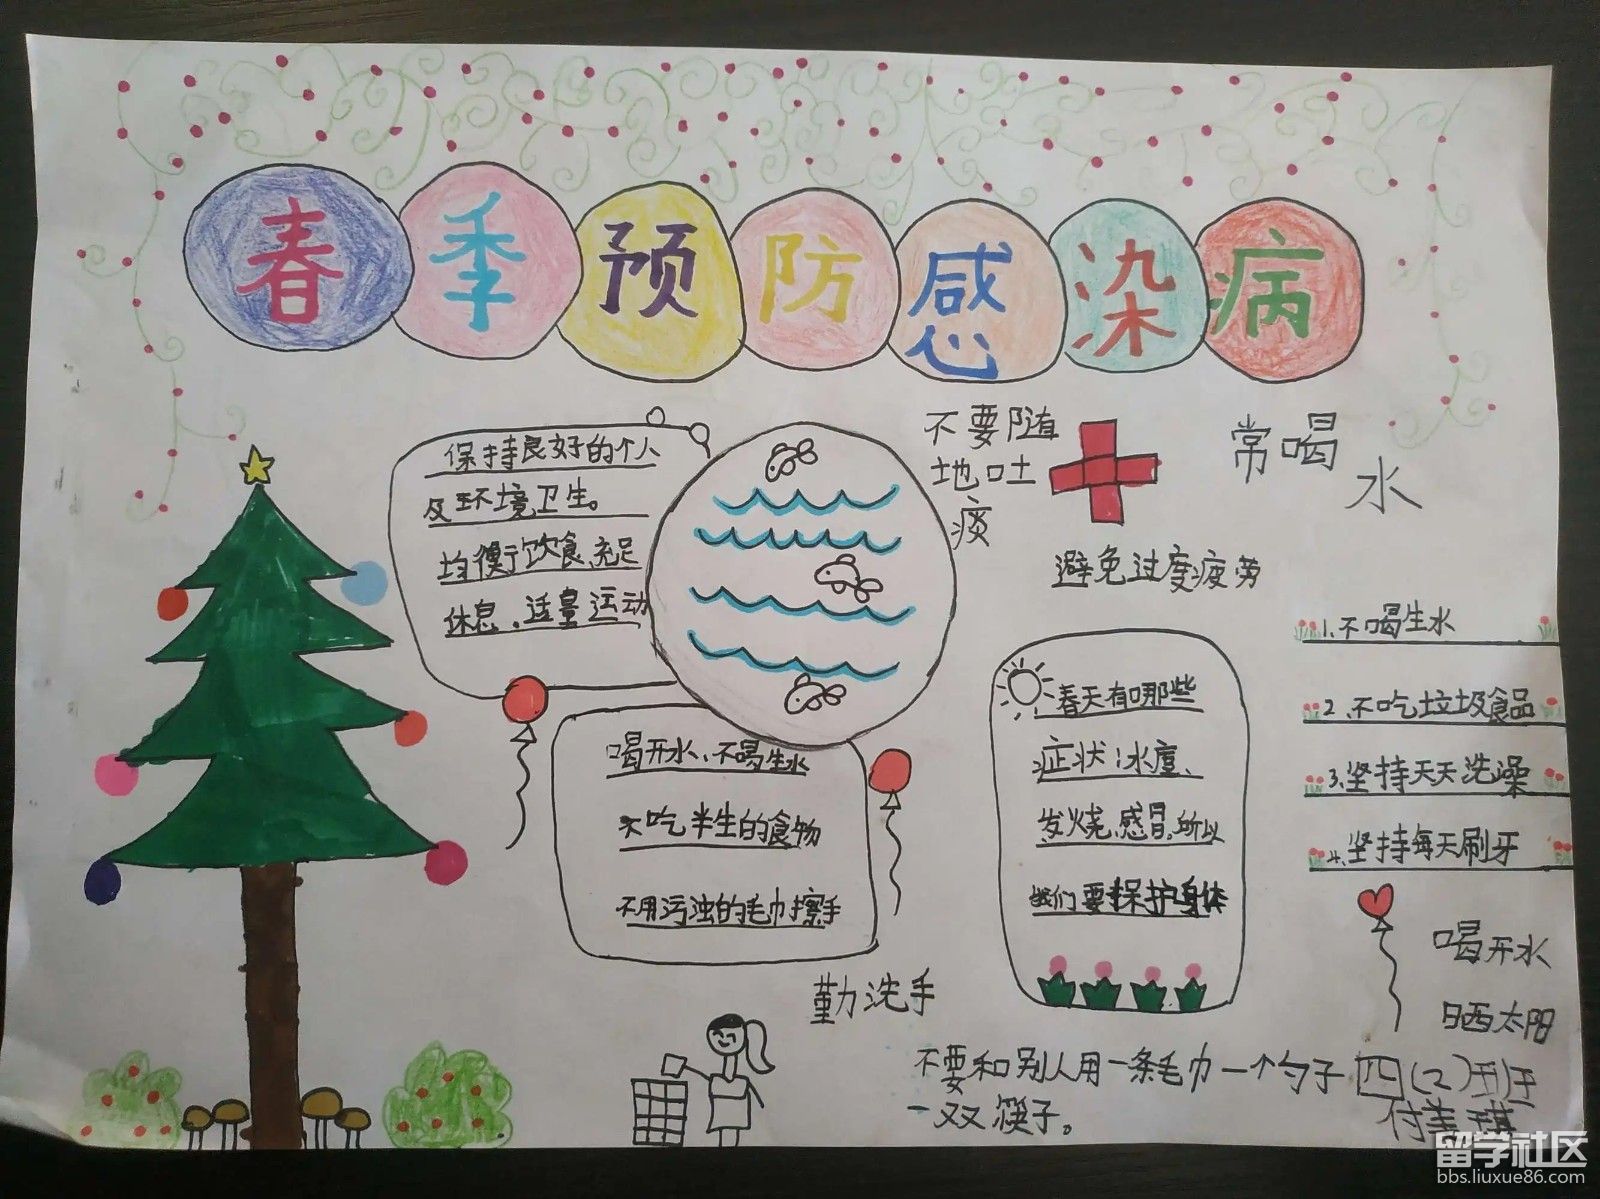 春季预防感染病
保持良好的个人
及环境卫生。
均衡饮食、充足
休息、适量运动
不要随
地吐
痰
常喝
水
避免过度疲劳
1.不喝生水
2.不吃垃圾食品
3.坚持天天洗澡
4.坚持每天刷牙
喝开水、不喝生水
不吃半生的食物
不用污浊的毛巾擦手
春天有哪些
症状:水痘、
发烧、感冒,所以
我们要保护身体
喝开水
晒太阳
勤洗手
不要和别人用一条毛巾一个勺子
一双筷子。
四(2)班
留学社区
bbs.liuxue86.com